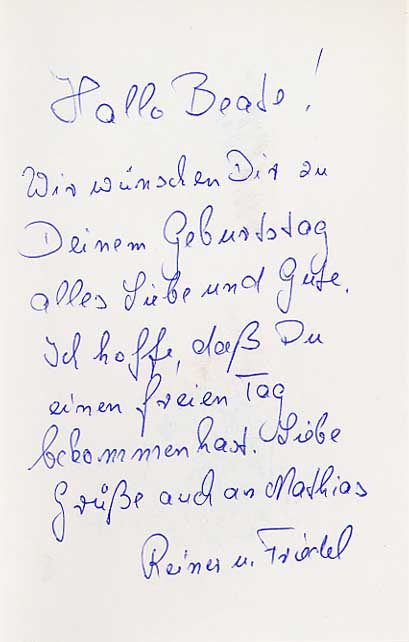 Hallo Beate!
Wir wünschen Dir zu
Deinem Geburtstag
alles Liebe und Gute.
Ich hoffe, daß Du
einen freien Tag
bekommen hast. Liebe
Grüße auch an Mathias
Reiner u. Friedel